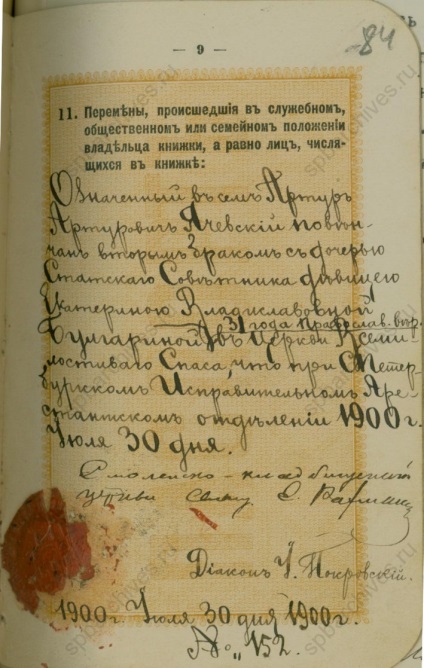 — 9 —
84
11. Перемѣны, происшедшія въ служебномъ,
общественномъ или семейномъ положеніи
владѣльца книжки, а равно лицъ, числя-
щихся въ книжкѣ:
Означенный въ семъ Артуръ
Артуровичъ Ячевскій повѣн-
чанъ вторымъ бракомъ съ дочерью
Статскаго Совѣтника дѣвицею
Екатериною Владиславовной
31 года Православ. вѣр.
Булгариной въ Церкви Всеми-
лостиваго Спаса, что при С.Петер-
бургскомъ Исправительномъ Аре-
стантскомъ отдѣленіи 1900 г.
Іюля 30 дня.
Смоленско-кладбищенской
церкви
Діаконъ І. Покровскій.
1900 г. Іюля 30 дня 1900 г.
№ 152.
spbarchives.ru